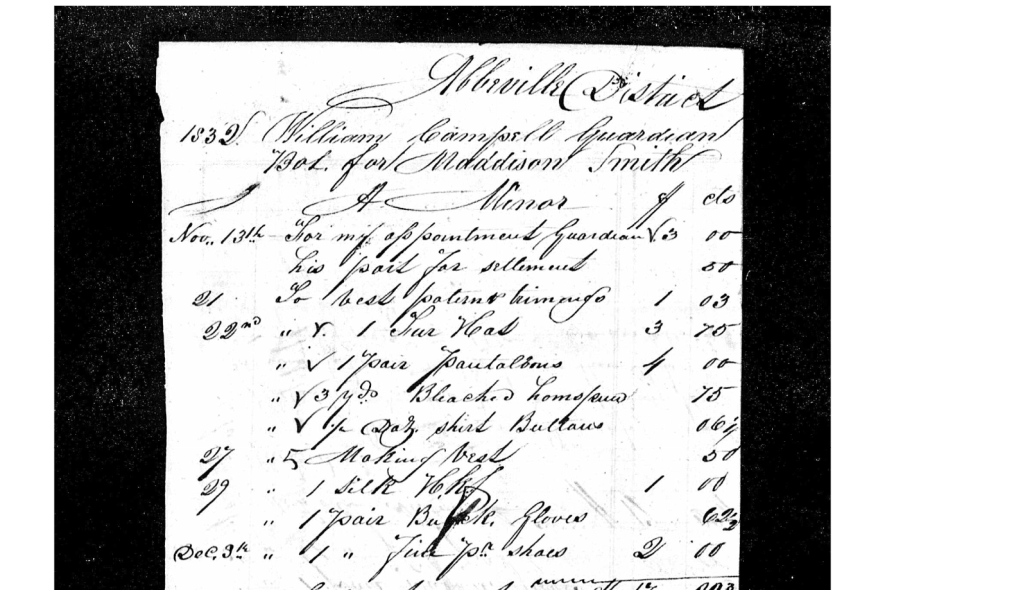 Abbeville District
1832 William Campell Guardian
Bot. for Maddison Smith
A Minor $ cts
Nov. 13th For my appointment Guardian √ 3 00
his part for settlement 50
21 To vest patern & trimings 1 03
22nd " √ 1 Fur Hat 3 75
" √ 1 Pair Pantaloons 4 00
" √ 3 yds Bleached homspun 75
" √ ½ Doz. shirt Buttons 06¼
27 " Making vest 50
29 " 1 silk H.kf 1 00
" 1 pair Buck. Gloves 62½
Dec. 3th " 1 " Fine pr shoes 2 00